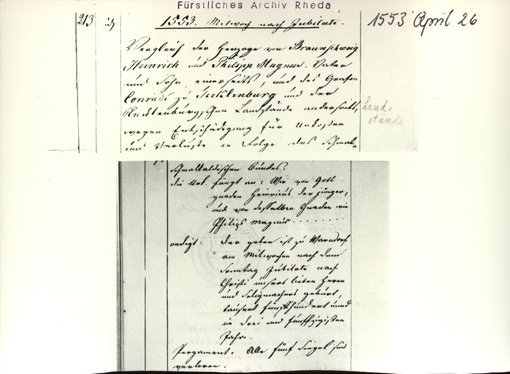 Fürstliches Archiv Rheda
213
1553. Mitwoch nach Jubilate.
1553 April 26
Vergleich der Herzoge von Braunschweig
Heinrich und Philipp Magnus, Vater
und Sohn einerseits, und des Grafen
Conrad zu Tecklenburg und der
Tecklenburgischen Landstände anderseits,
Land-
stände
wegen Entschädigung für Unkosten
und Verluste in Folge des Schmal-
Schmalkaldischen Bundes.
die Urk. fängt an: Wir von Gots
gnaden Heinricus der jünger,
und von desselben Gnaden wir
Philips Magnus
endigt: der geben ist zu Warendorf
am Mitwochen nach dem
Sonntag Jubilate nach
Christi unsers lieben Herrn
und Seligmachers geburt,
tausend fünfhundert und
in drei und fünffzigsten
Jahr.
Pergament. Alle fünf Siegel sind
verloren.